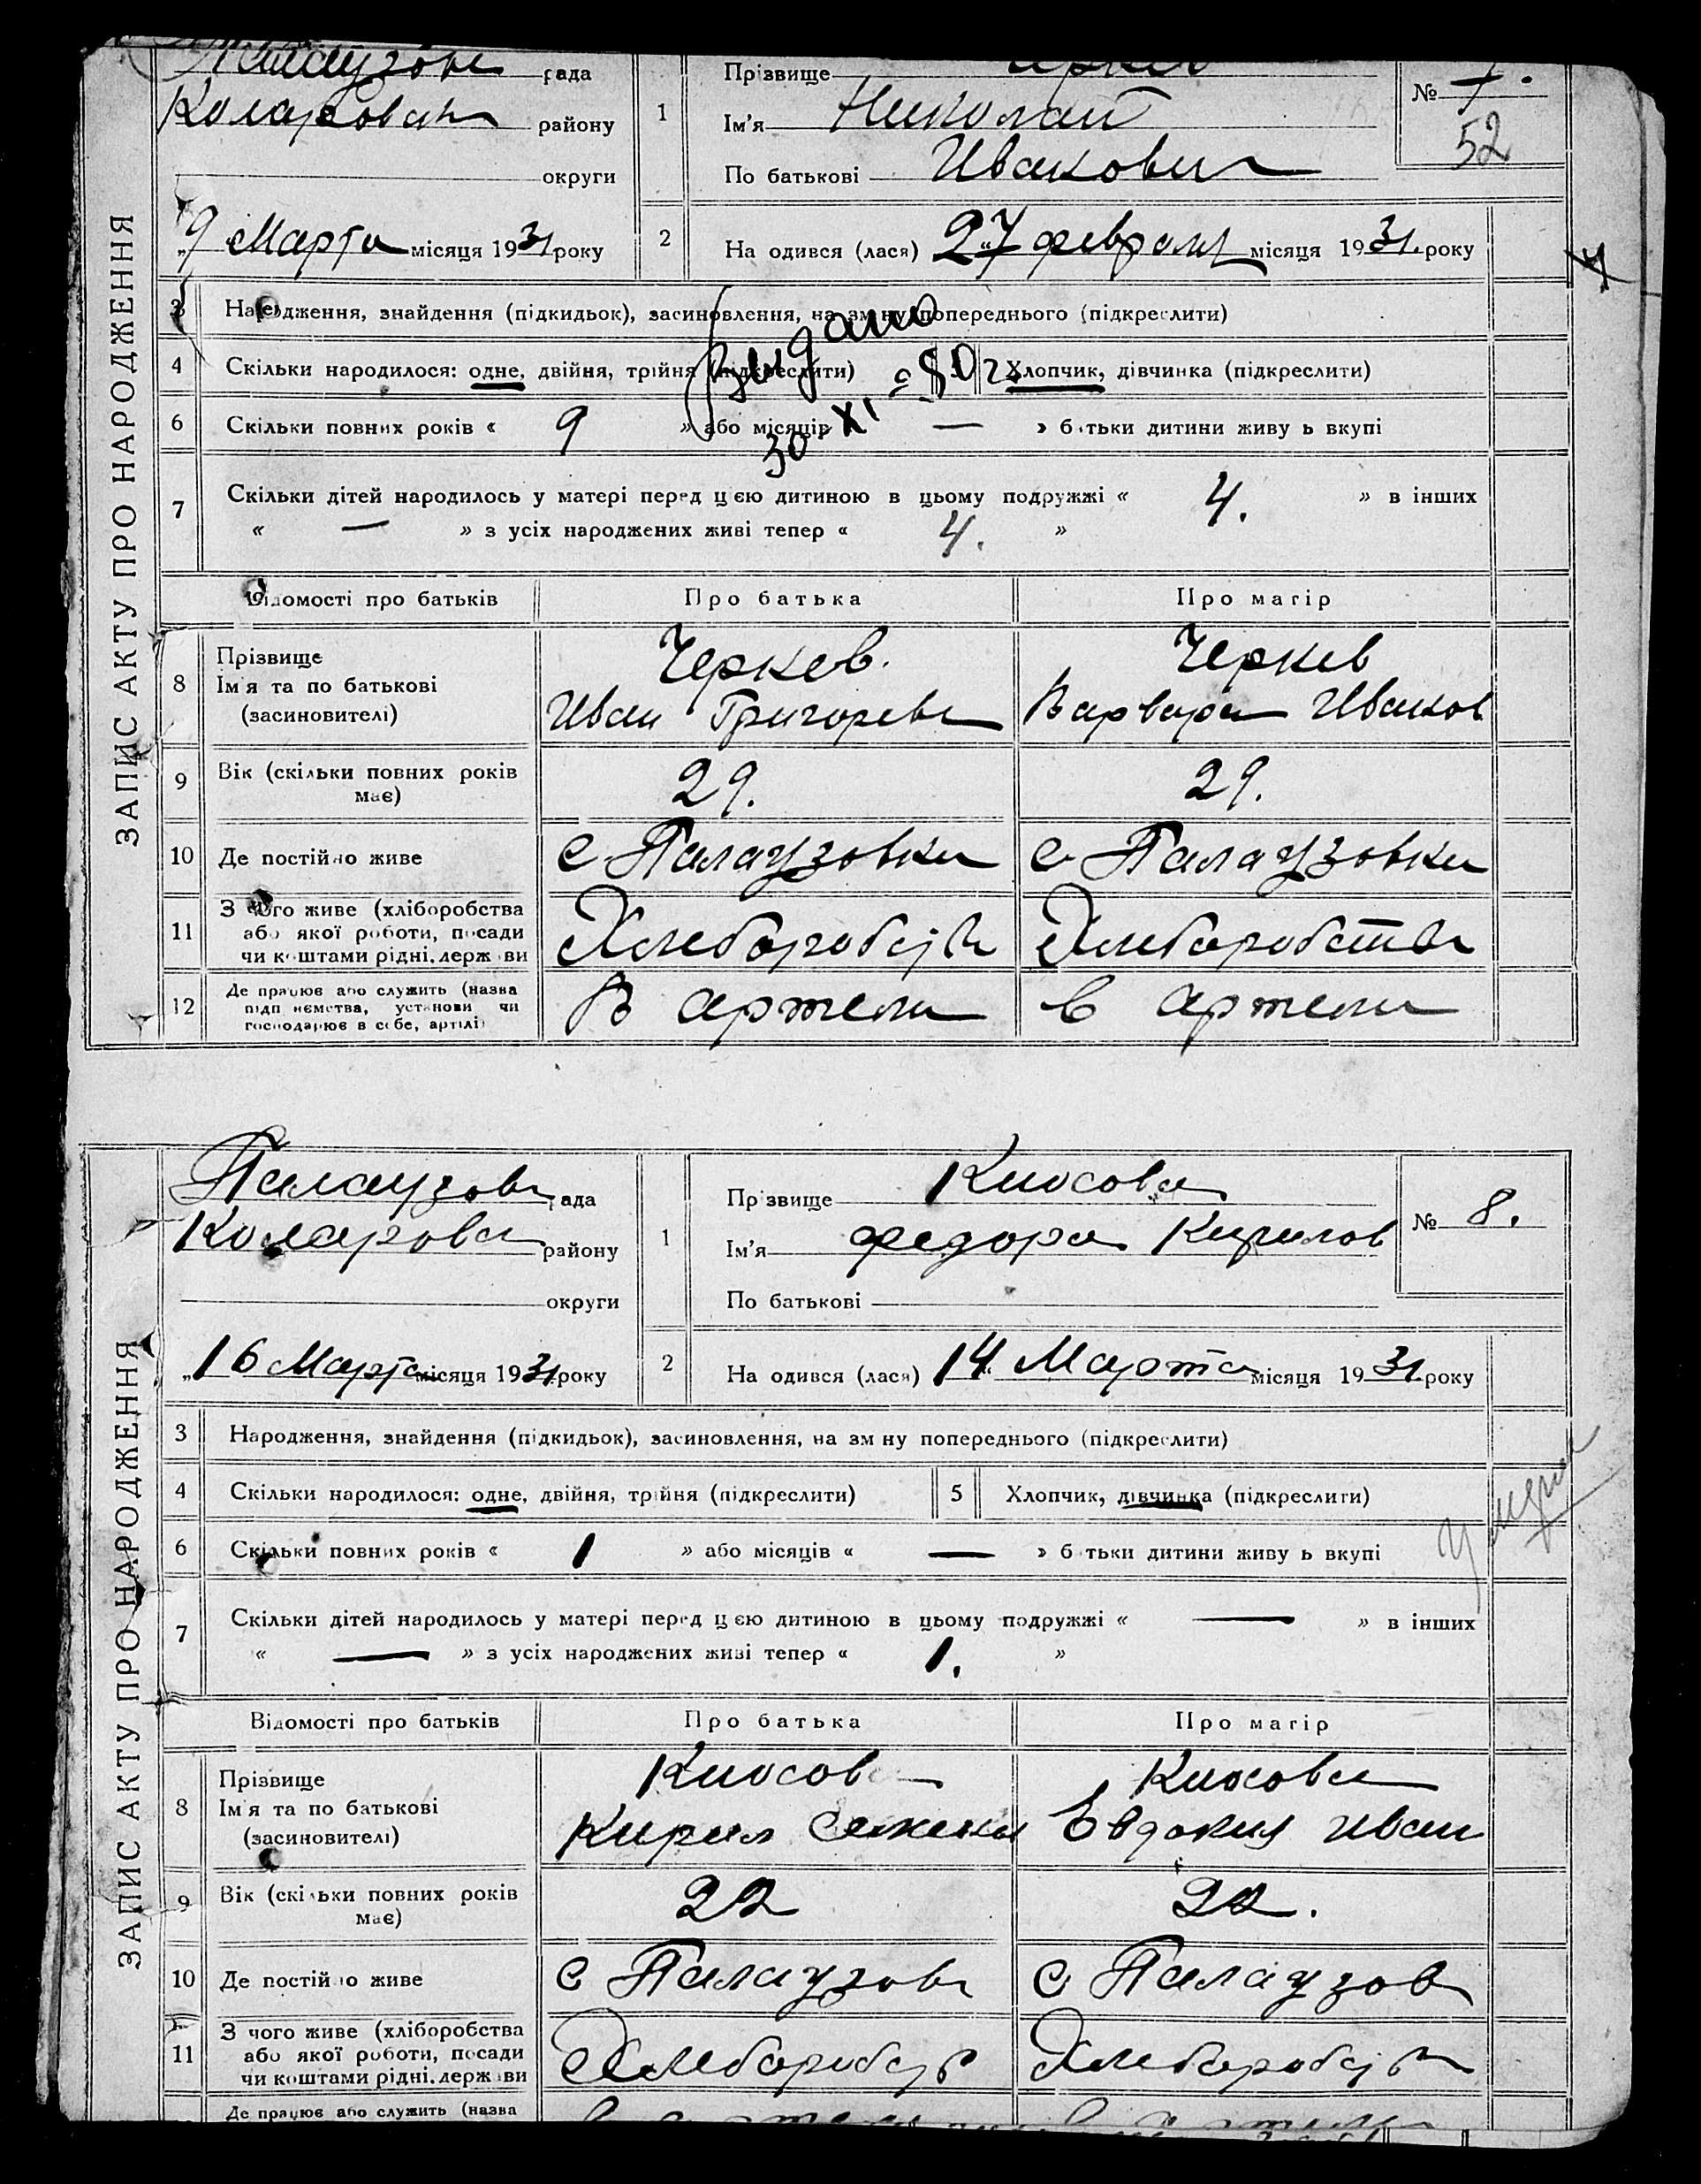 ЗАПИС АКТУ ПРО НАРОДЖЕННЯ
рада
району
округи
„9 Марта місяця 1931 року
1
Прізвище
Ім'я Николай
По батькові Иванович
№ 7.
52
2
На одився (лася) „27 февраля місяця 1931. року
3 Народження, знайдення (підкидьок), засиновлення, на зм ну попереднього (підкреслити)
Видано
30 XI - 50 г.
4 Скільки народилося: одне, двійня, трійня (підкреслити) Хлопчик, дівчинка (підкреслити)
6 Скільки повних років « 9 » або місяців — » б тьки дитини живу ь вкупі
7 Скільки дітей народилось у матері перед цією дитиною в цьому подружжі « 4. » в інших
« — » з усіх народжених живі тепер « 4. »
Відомості про батьків Про батька Про матір
8 Прізвище Черкев. Черкев
Ім'я та по батькові Иван Григореви Варвара Иванов
(засиновителі)
9 Вік (скільки повних років має) 29. 29.
10 Де постійно живе с Палаузовки с Палаузовки
11 З чого живе (хліборобства
або якої роботи, посади
чи коштами рідні, держ ви Хлеборобств Хлеборобства
12 Де працює або служить (назва
підп иємства, установи чи
господарює в себе, артілі) В артели в артели
ЗАПИС АКТУ ПРО НАРОДЖЕННЯ
Палаузов рада
Коларова району
округи
„16 Марта місяця 1931. року
1
Пр звище Киосова
Ім'я Федора Кирилов
По батькові
№ 8.
2
На одився (лася) 14 „ Марта місяця 1931. року
3 Народження, знайдення (підкидьок), засиновлення, на зм ну попереднього (підкреслити)
4 Скільки народилося: одне, двійня, трійня (підкреслити) 5 Хлопчик, дівчинка (підкреслити)
6 Скільки повних років « 1 » або місяців « — » б тьки дитини живу ь вкупі
7 Скільки дітей народилось у матері перед цією дитиною в цьому подружжі « — » в інших
« — » з усіх народжених живі тепер « 1. »
Відомості про батьків Про батька Про матір
8 Прізвище Киосов Киосова
Ім'я та по батькові Кирил Евдокия Иван
(засиновителі)
9 Вік (скільки повних років має) 22 22.
10 Де постійно живе с Палаузов с Палаузов
11 З чого живе (хліборобства
або якої роботи, посади
чи коштами рідні, держ ви Хлеборобств Хлеборобств
Де працює або служить (назва